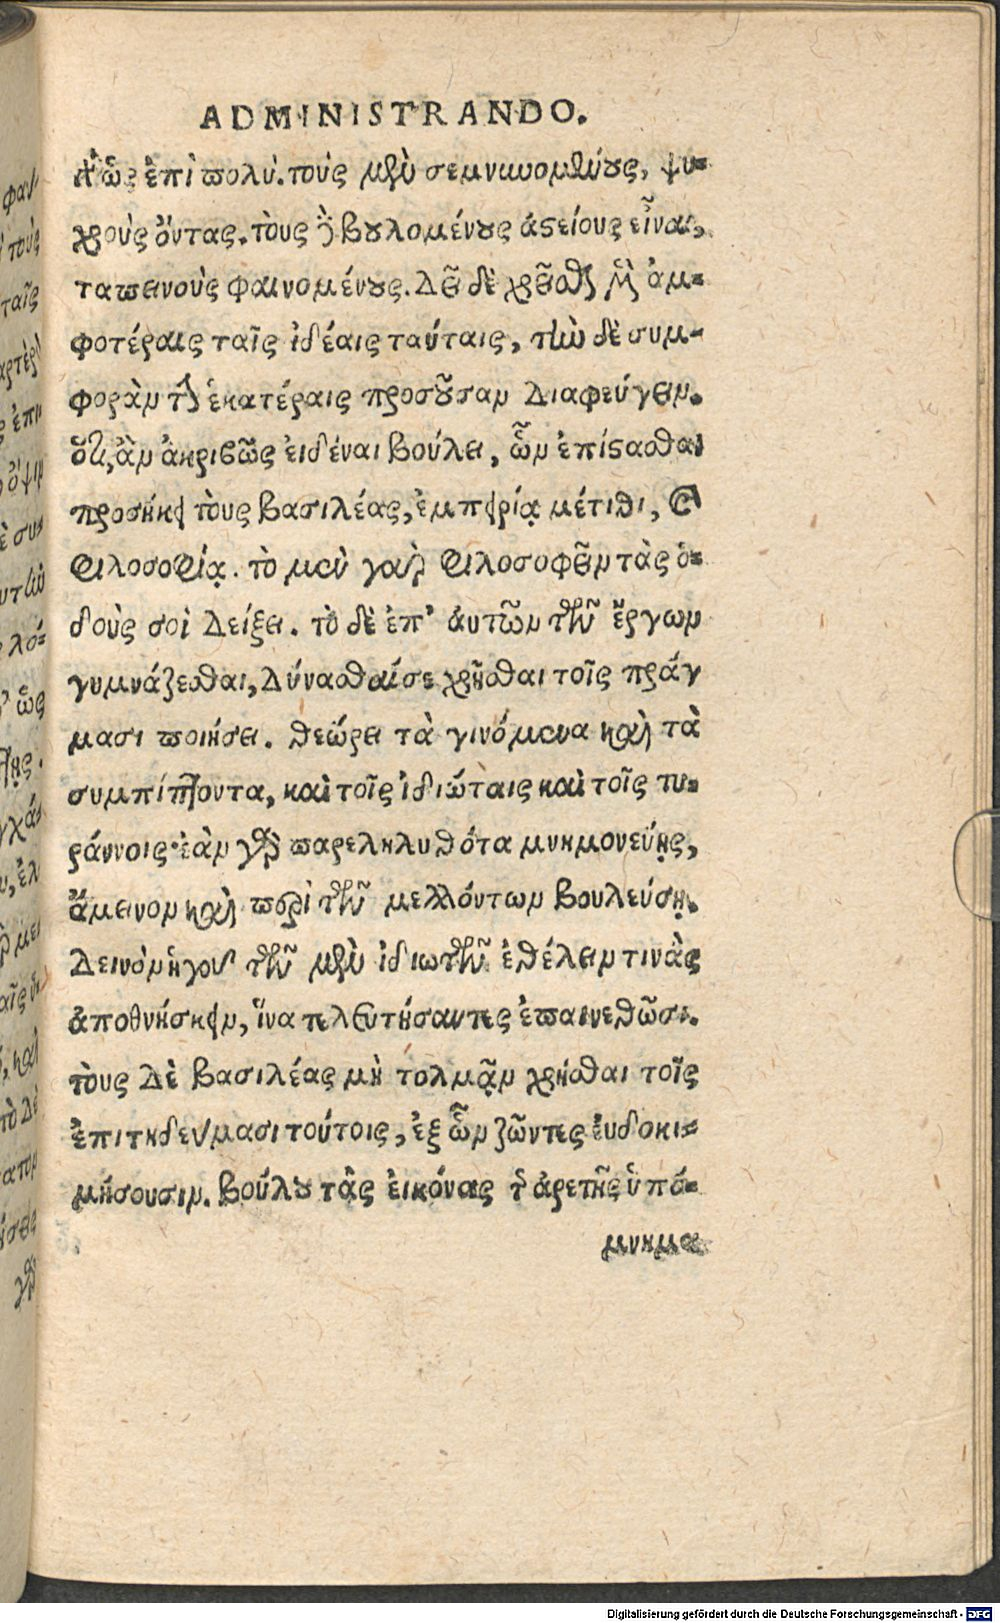 ADMINISTRANDO.
ὡς ἐπὶ πολύ. τοὺς μὲν σεμνυνομένους, ψυ-
χροὺς ὄντας. τοὺς δὲ βουλομένους ἀστείους εἶναι,
ταπεινοὺς φαινομένους. Δεῖ δὲ χρῆσθαι μὲν ἀμ-
φοτέραις ταῖς ἰδέαις ταύταις, τὴν δὲ συμ-
φορὰν τὴν ἑκατέραις προσοῦσαν διαφεύγειν.
ὅτι ἂν ἀκριβῶς εἰδέναι βούλει, ὧν ἐπίστασθαι
προσήκει τοὺς βασιλέας, ἐμπειρίᾳ μέτιθι, καὶ
φιλοσοφίᾳ. τὸ μὲν γὰρ φιλοσοφεῖν τὰς ὁ-
δοὺς σοὶ δείξει. τὸ δὲ ἐπ' ἀυτῶν τῶν ἔργων
γυμνάζεσθαι, δύνασθαί σε χρῆσθαι τοῖς πράγ
μασι ποιήσει. θεώρει τὰ γινόμενα καὶ τὰ
συμπίπτοντα, καὶ τοῖς ἰδιώταις καὶ τοῖς τυ-
ράννοις· ἐὰν γὰρ παρεληλυθότα μνημονεύῃς,
ἄμεινον καὶ περὶ τῶν μελλόντων βουλεύσῃ.
Δεινὸν ἡγοῦ τῶν μὲν ἰδιωτῶν ἐθέλειν τινὰς
ἀποθνήσκειν, ἵνα τελευτήσαντες ἐπαινεθῶσι.
τοὺς δὲ βασιλέας μὴ τολμᾷν χρῆσθαι τοῖς
ἐπιτηδεύμασι τούτοις, ἐξ ὧν ζῶντες ἐυδοκι-
μήσουσιν. βούλου τὰς ἐικόνας τῆς ἀρετῆς ὑπό-
μνημα
Digitalisierung gefördert durch die Deutsche Forschungsgemeinschaft - DFG